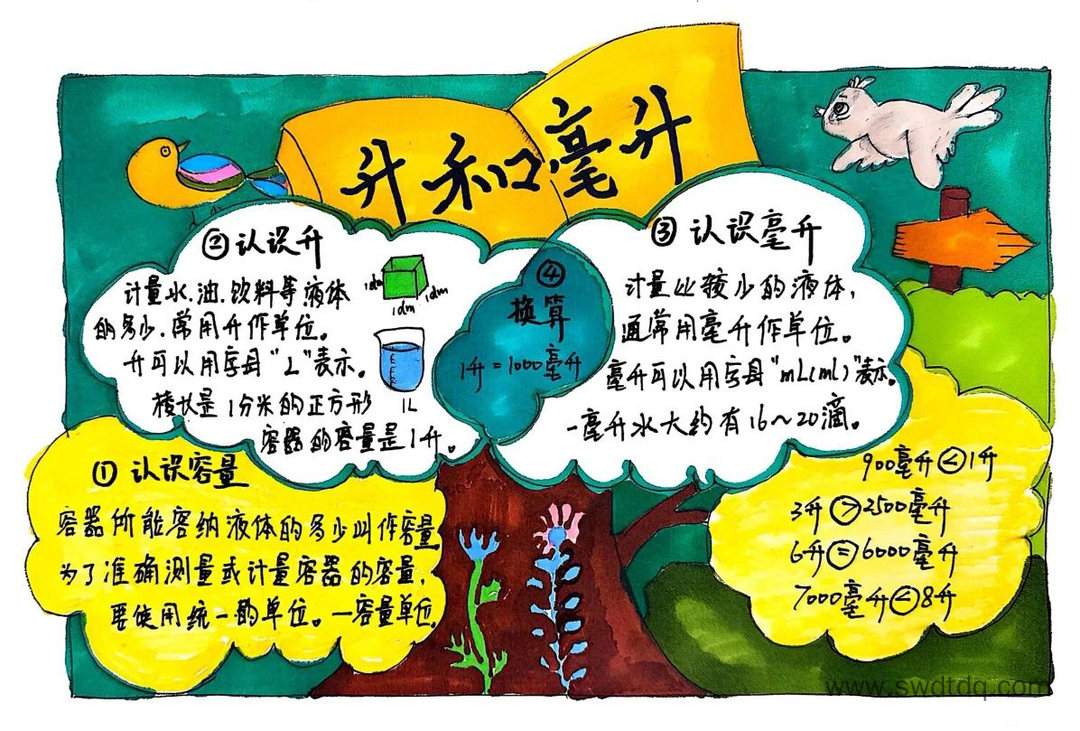 升和毫升
②认识升
计量水、油、饮料等液体
的多少,常用升作单位。
升可以用字母“L”表示。
棱长是1分米的正方形
容器的容量是1升。
1dm
1dm
1dm
1L
④
换算
1升=1000毫升
③认识毫升
计量比较少的液体,
通常用毫升作单位。
毫升可以用字母“mL(ml)”表示。
一毫升水大约有16~20滴。
①认识容量
容器所能容纳液体的多少叫作容量
为了准确测量或计量容器的容量,
要使用统一的单位。一容量单位
900毫升<1升
3升>2500毫升
6升=6000毫升
7000毫升<8升
www.swdtdq.com